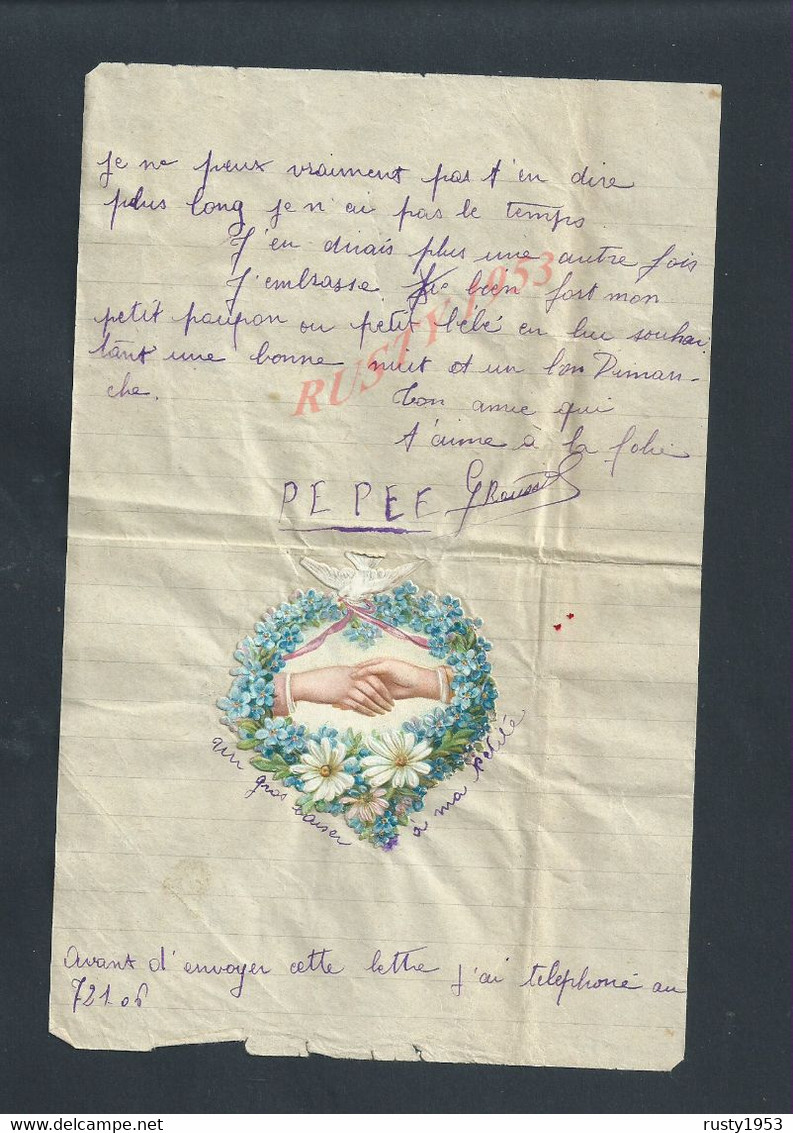 je ne peux vraiment pas t'en dire
plus long je n'ai pas le temps.
J'en dirais plus une autre fois
J'embrasse bien fort mon
petit poupon ou petit bébé en lui souhai
tant une bonne nuit et un bon Diman-
che. Ton amie qui
t'aime a la folie
PEPEE
un gros baiser
à ma petite
Avant d'envoyer cette lettre j'ai téléphoné au
721.06
RUSTY 1953
delcampe.net
rusty1953